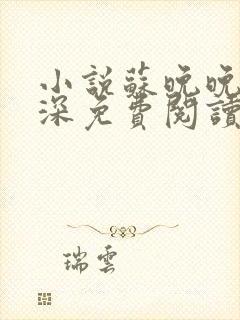 小說蘇晚晚
深免費閱讀
瑞雲